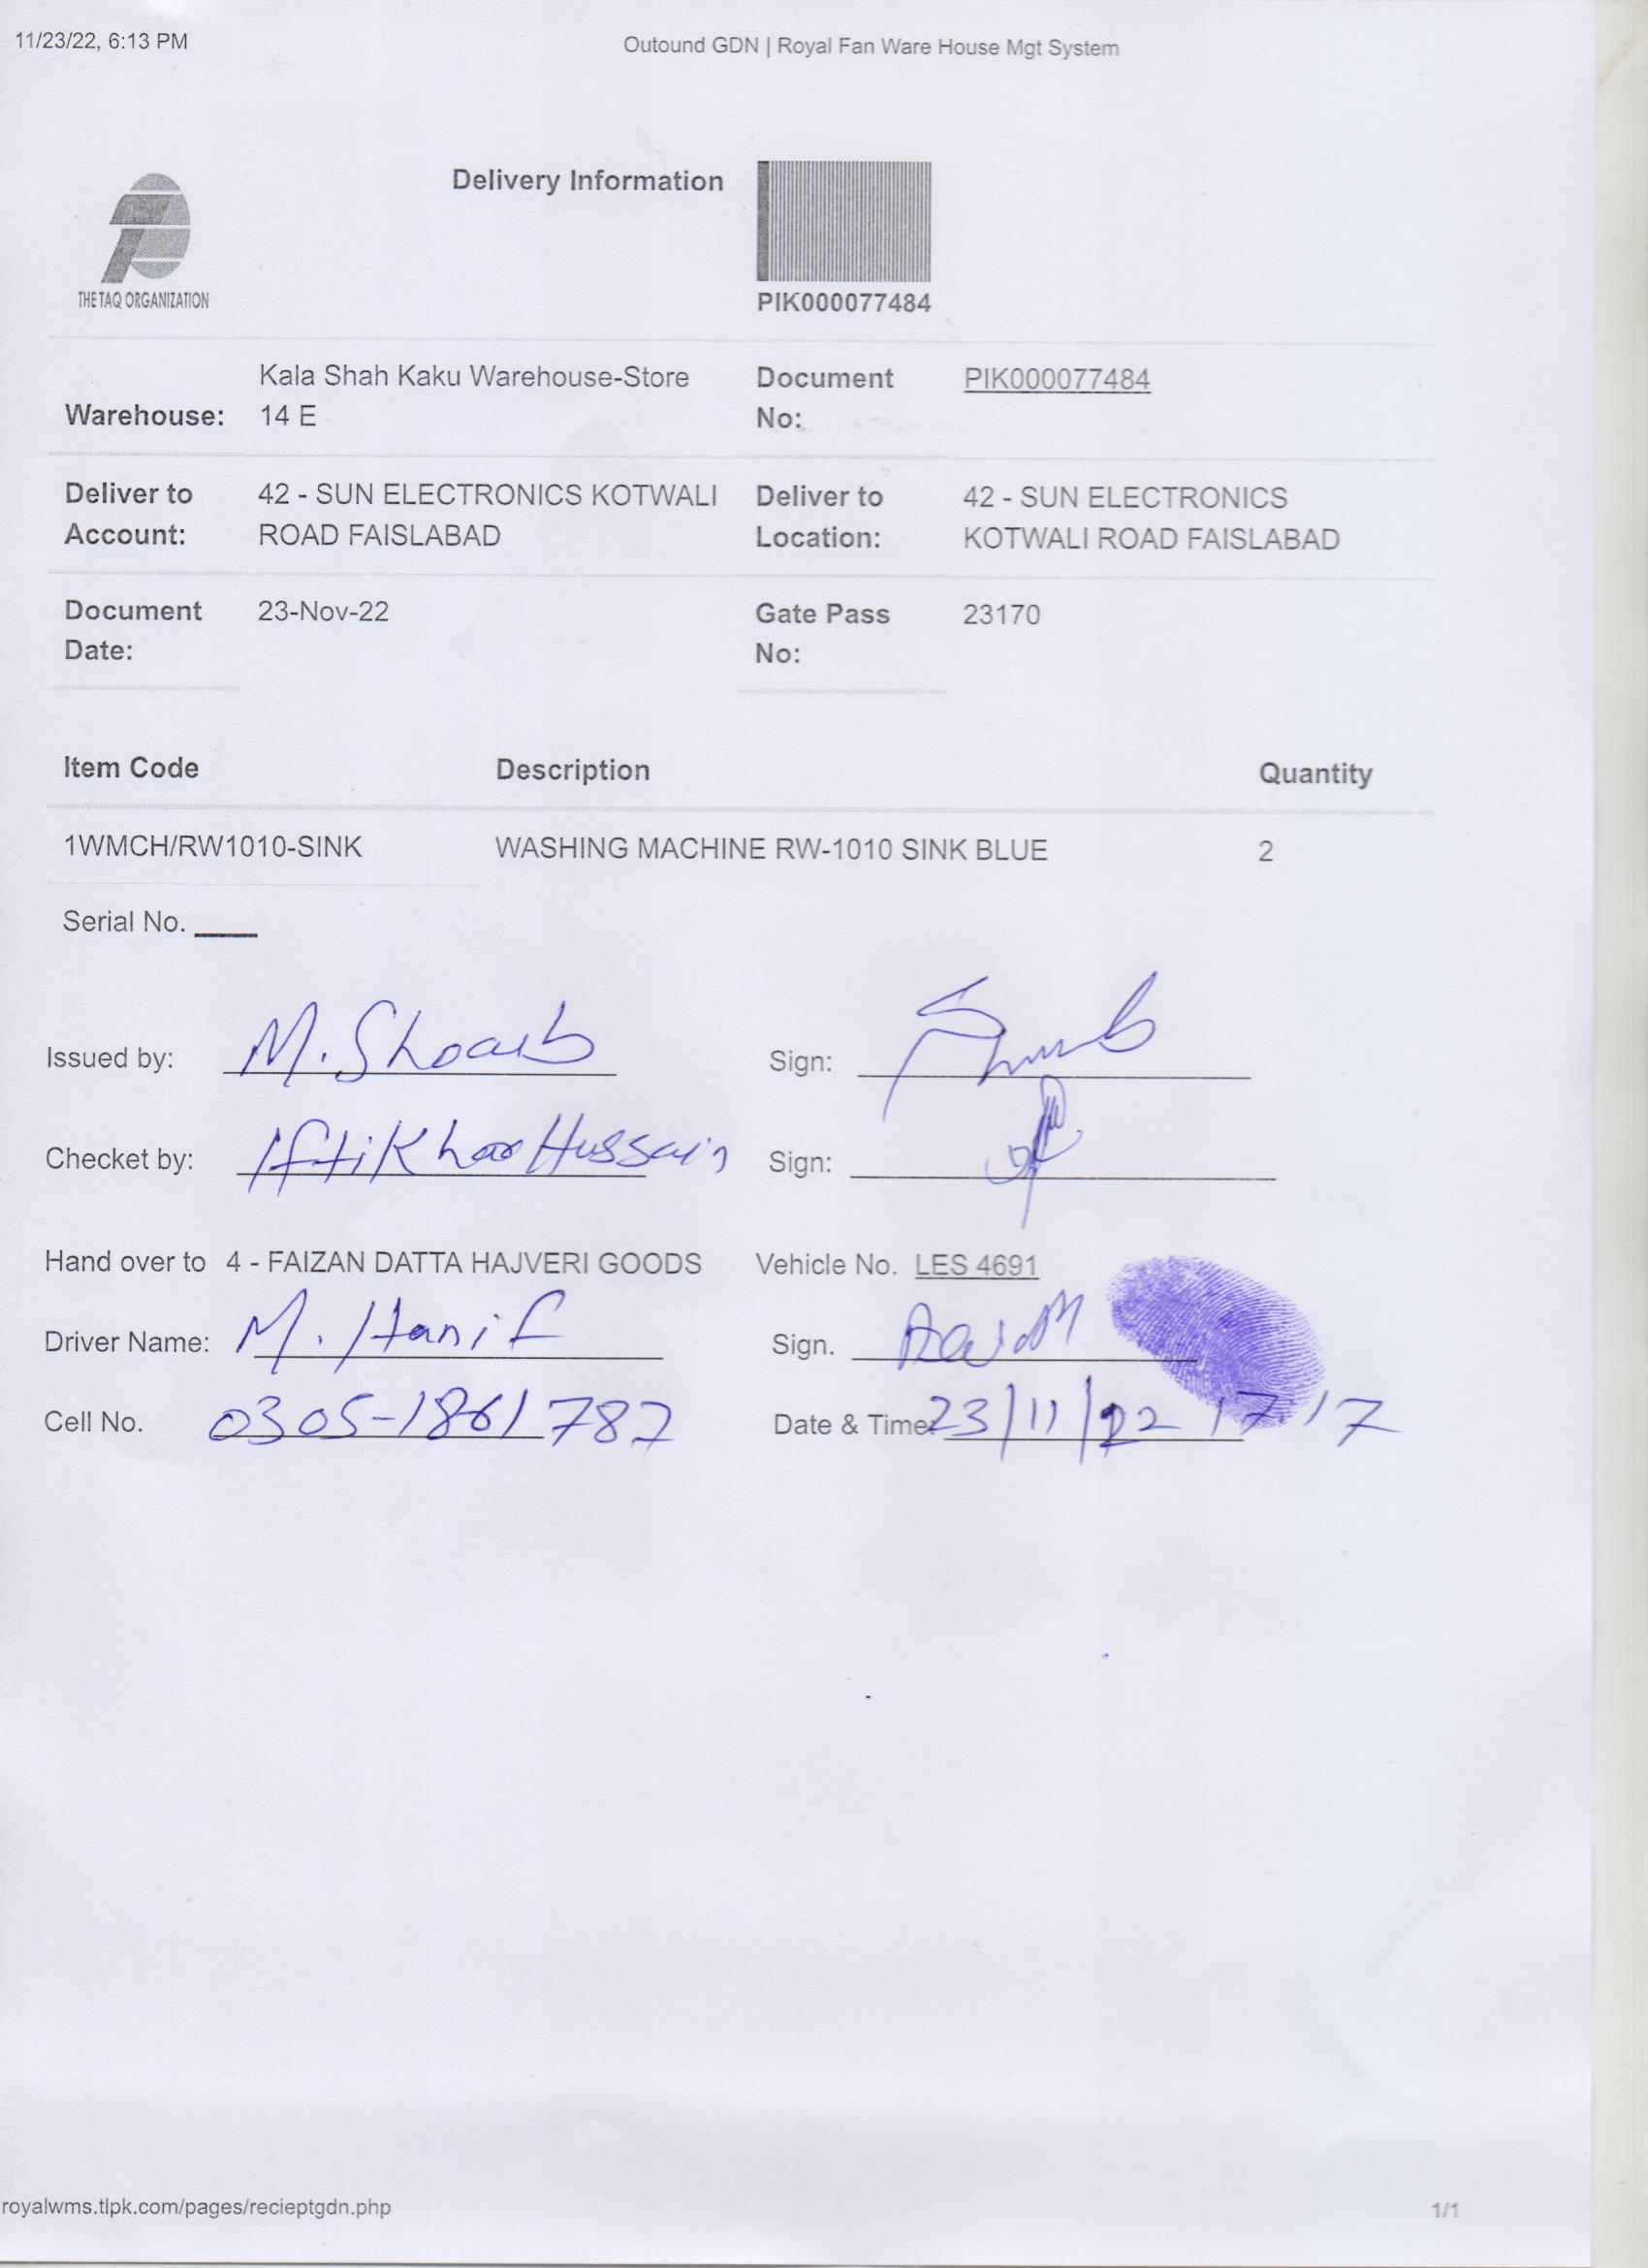 11/23/22, 6:13 PM
Outound GDN | Royal Fan Ware House Mgt System
Delivery Information
THE TAQ ORGANIZATION
PIK000077484
Kala Shah Kaku Warehouse-Store
Warehouse: 14 E
Document No: PIK000077484
Deliver to Account: 42 - SUN ELECTRONICS KOTWALI
ROAD FAISLABAD
Deliver to Location: 42 - SUN ELECTRONICS
KOTWALI ROAD FAISLABAD
Document Date: 23-Nov-22
Gate Pass No: 23170
Item Code Description Quantity
1WMCH/RW1010-SINK WASHING MACHINE RW-1010 SINK BLUE 2
Serial No.
Issued by: M. Shoaib Sign:
Checket by: Iftikhar Hussain Sign:
Hand over to 4 - FAIZAN DATTA HAJVERI GOODS Vehicle No. LES 4691
Driver Name: M. Hanif Sign.
Cell No. 0305-1861787 Date & Time: 23/11/22
royalwms.tlpk.com/pages/recieptgdn.php
1/1